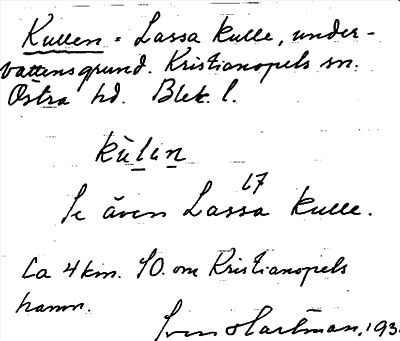 Kullen = Lassa kulle, under-
vattensgrund. Kristianopels sn.
Östra hd. Blek. l.
kùlin
17
Se även Lassa kulle.
Ca 4 km. SO. om Kristianopels
hamn.
Sven Hartman, 193